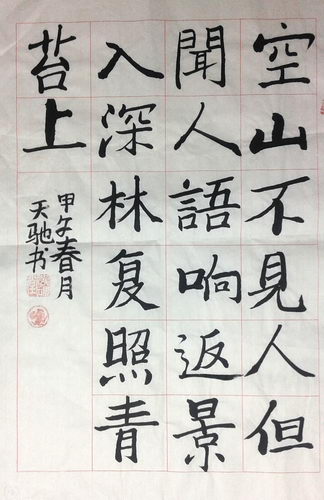 空山不見人但
聞人語响返景
入深林复照青
苔上
甲午春月
天驰书